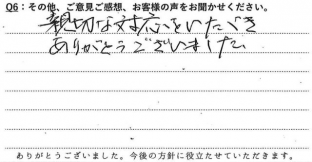 Q6：その他、ご意見ご感想、お客様の声をお聞かせください。
親切な対応をいただき
ありがとうございました
ありがとうございました。今後の方針に役立たせていただきます。